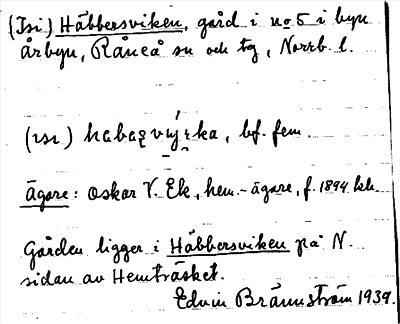 (Isi) Häbbersviken, gård i no 5 i byn
Årbyn, Råneå sn och tg, Norrb. l.
(ısı) , bf. fem.
Ägare: Oskar V. Ek, hem.-ägare, f. 1894 kh.
Gården ligger i Häbbersviken på N.
sidan av Hemträsket.
Edvin Brännström 1939.